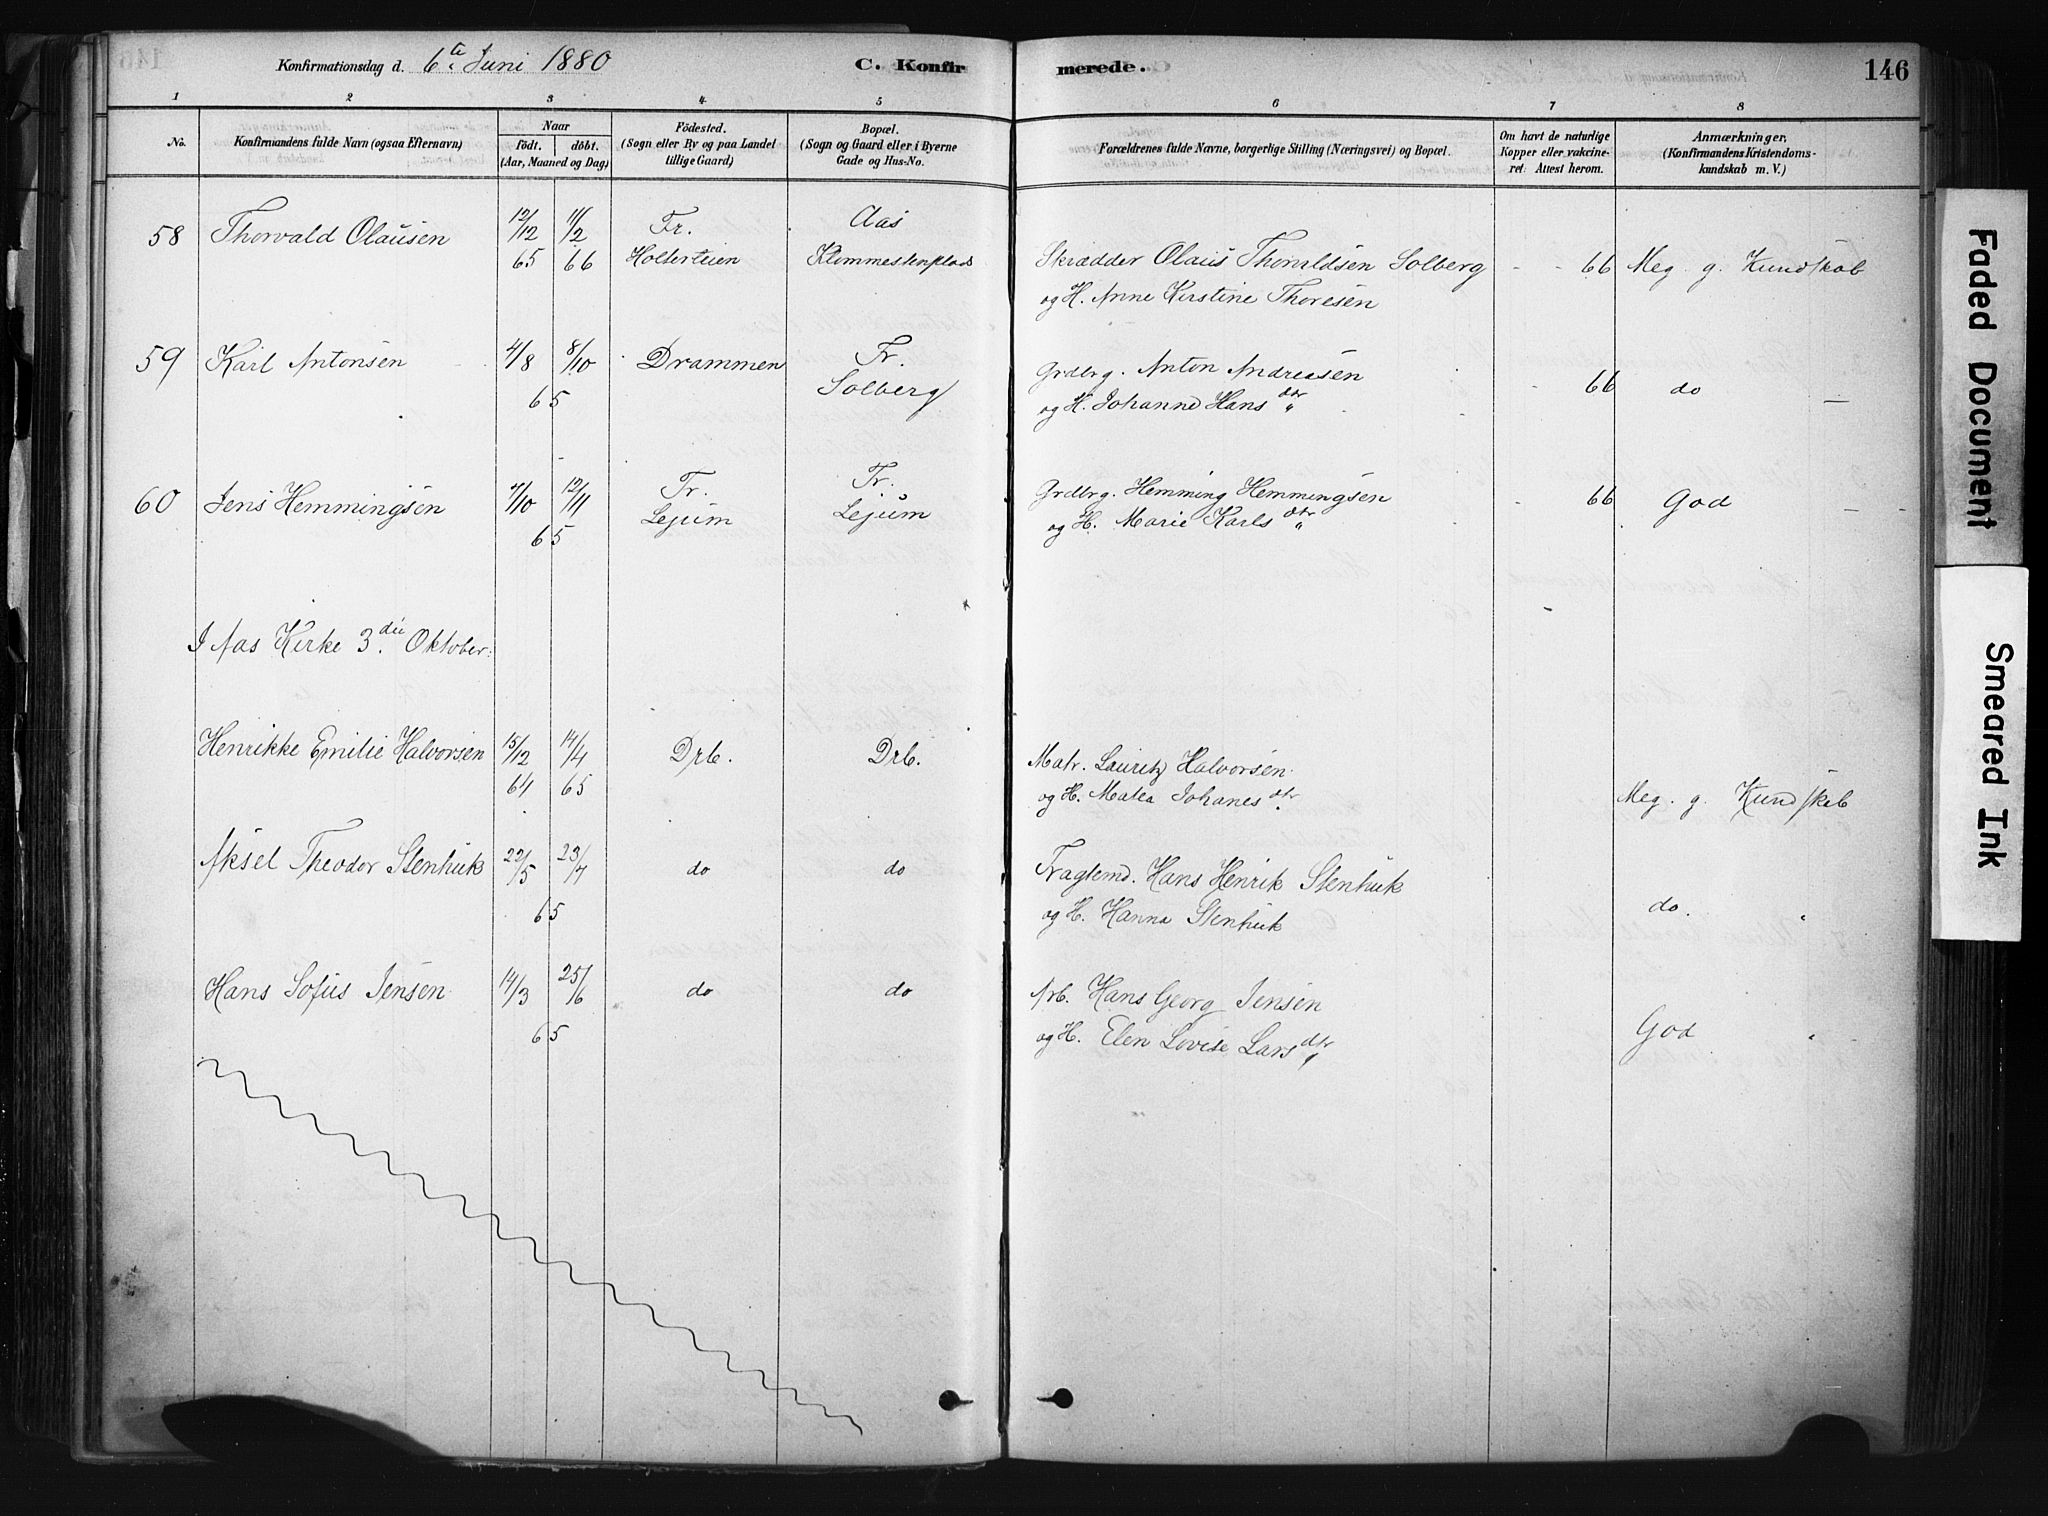 Konfirmationsdag d. 6te Juni 1880
C. Konfirmerede.
146
1 2 3 4 5 6 7 8
No.
Konfirmandens fulde Navn (ogsaa Efternavn)
Naar
födt. döbt.
(Aar, Maaned og Dag)
Födested.
(Sogn eller By og paa Landet
tillige Gaard)
Bopæl.
(Sogn og Gaard eller i Byerne
Gade og Hus-No.
Forældrenes fulde Navne, borgerlige Stilling (Næringsvei) og Bopæl.
Om havt de naturlige
Kopper eller vakcine-
ret: Attest herom.
Anmærkninger,
(Konfirmandens Kristendoms-
kundskab m. V.)
58 Thorvald Olausen 12/12 11/2 Fr. Aas
65 66 Holterteien Klommestenplads Skrædder Olaus Thorvaldsen Solberg 66 Meg. g. Kundskab
og H. Anne Kirstine Thoresen
59 Karl Antonsen 4/8 8/10 Drammen Fr. Grdbrg. Anton Andreasen
65 Solberg og H. Johanne Hansdtr 66 do
60 Jens Hemmingsen 7/10 12/11 Fr. Fr. Grdbrg. Hemming Hemmingsen 66 God
65 Lejum Lejum og H. Marie Karlsdtr
I Aas Kirke 3die Oktober.
Henrikke Emilie Halvorsen 15/12 14/4 Drb. Drb. Matr. Lauritz Halvorsen
64 65 og H. Matea Johanesdtr. Meg. g. Kundskab
Aksel Theodor Stenhuk 22/5 23/7 do do Fragtemd. Hans Henrik Stenhuk
65 og H. Hanna Stenhuk do.
Hans Sofus Jensen 14/3 25/6 do do Arb. Hans Georg Jensen
65 og H. Elen Lovise Larsdtr God
Faded Document
Smeared Ink